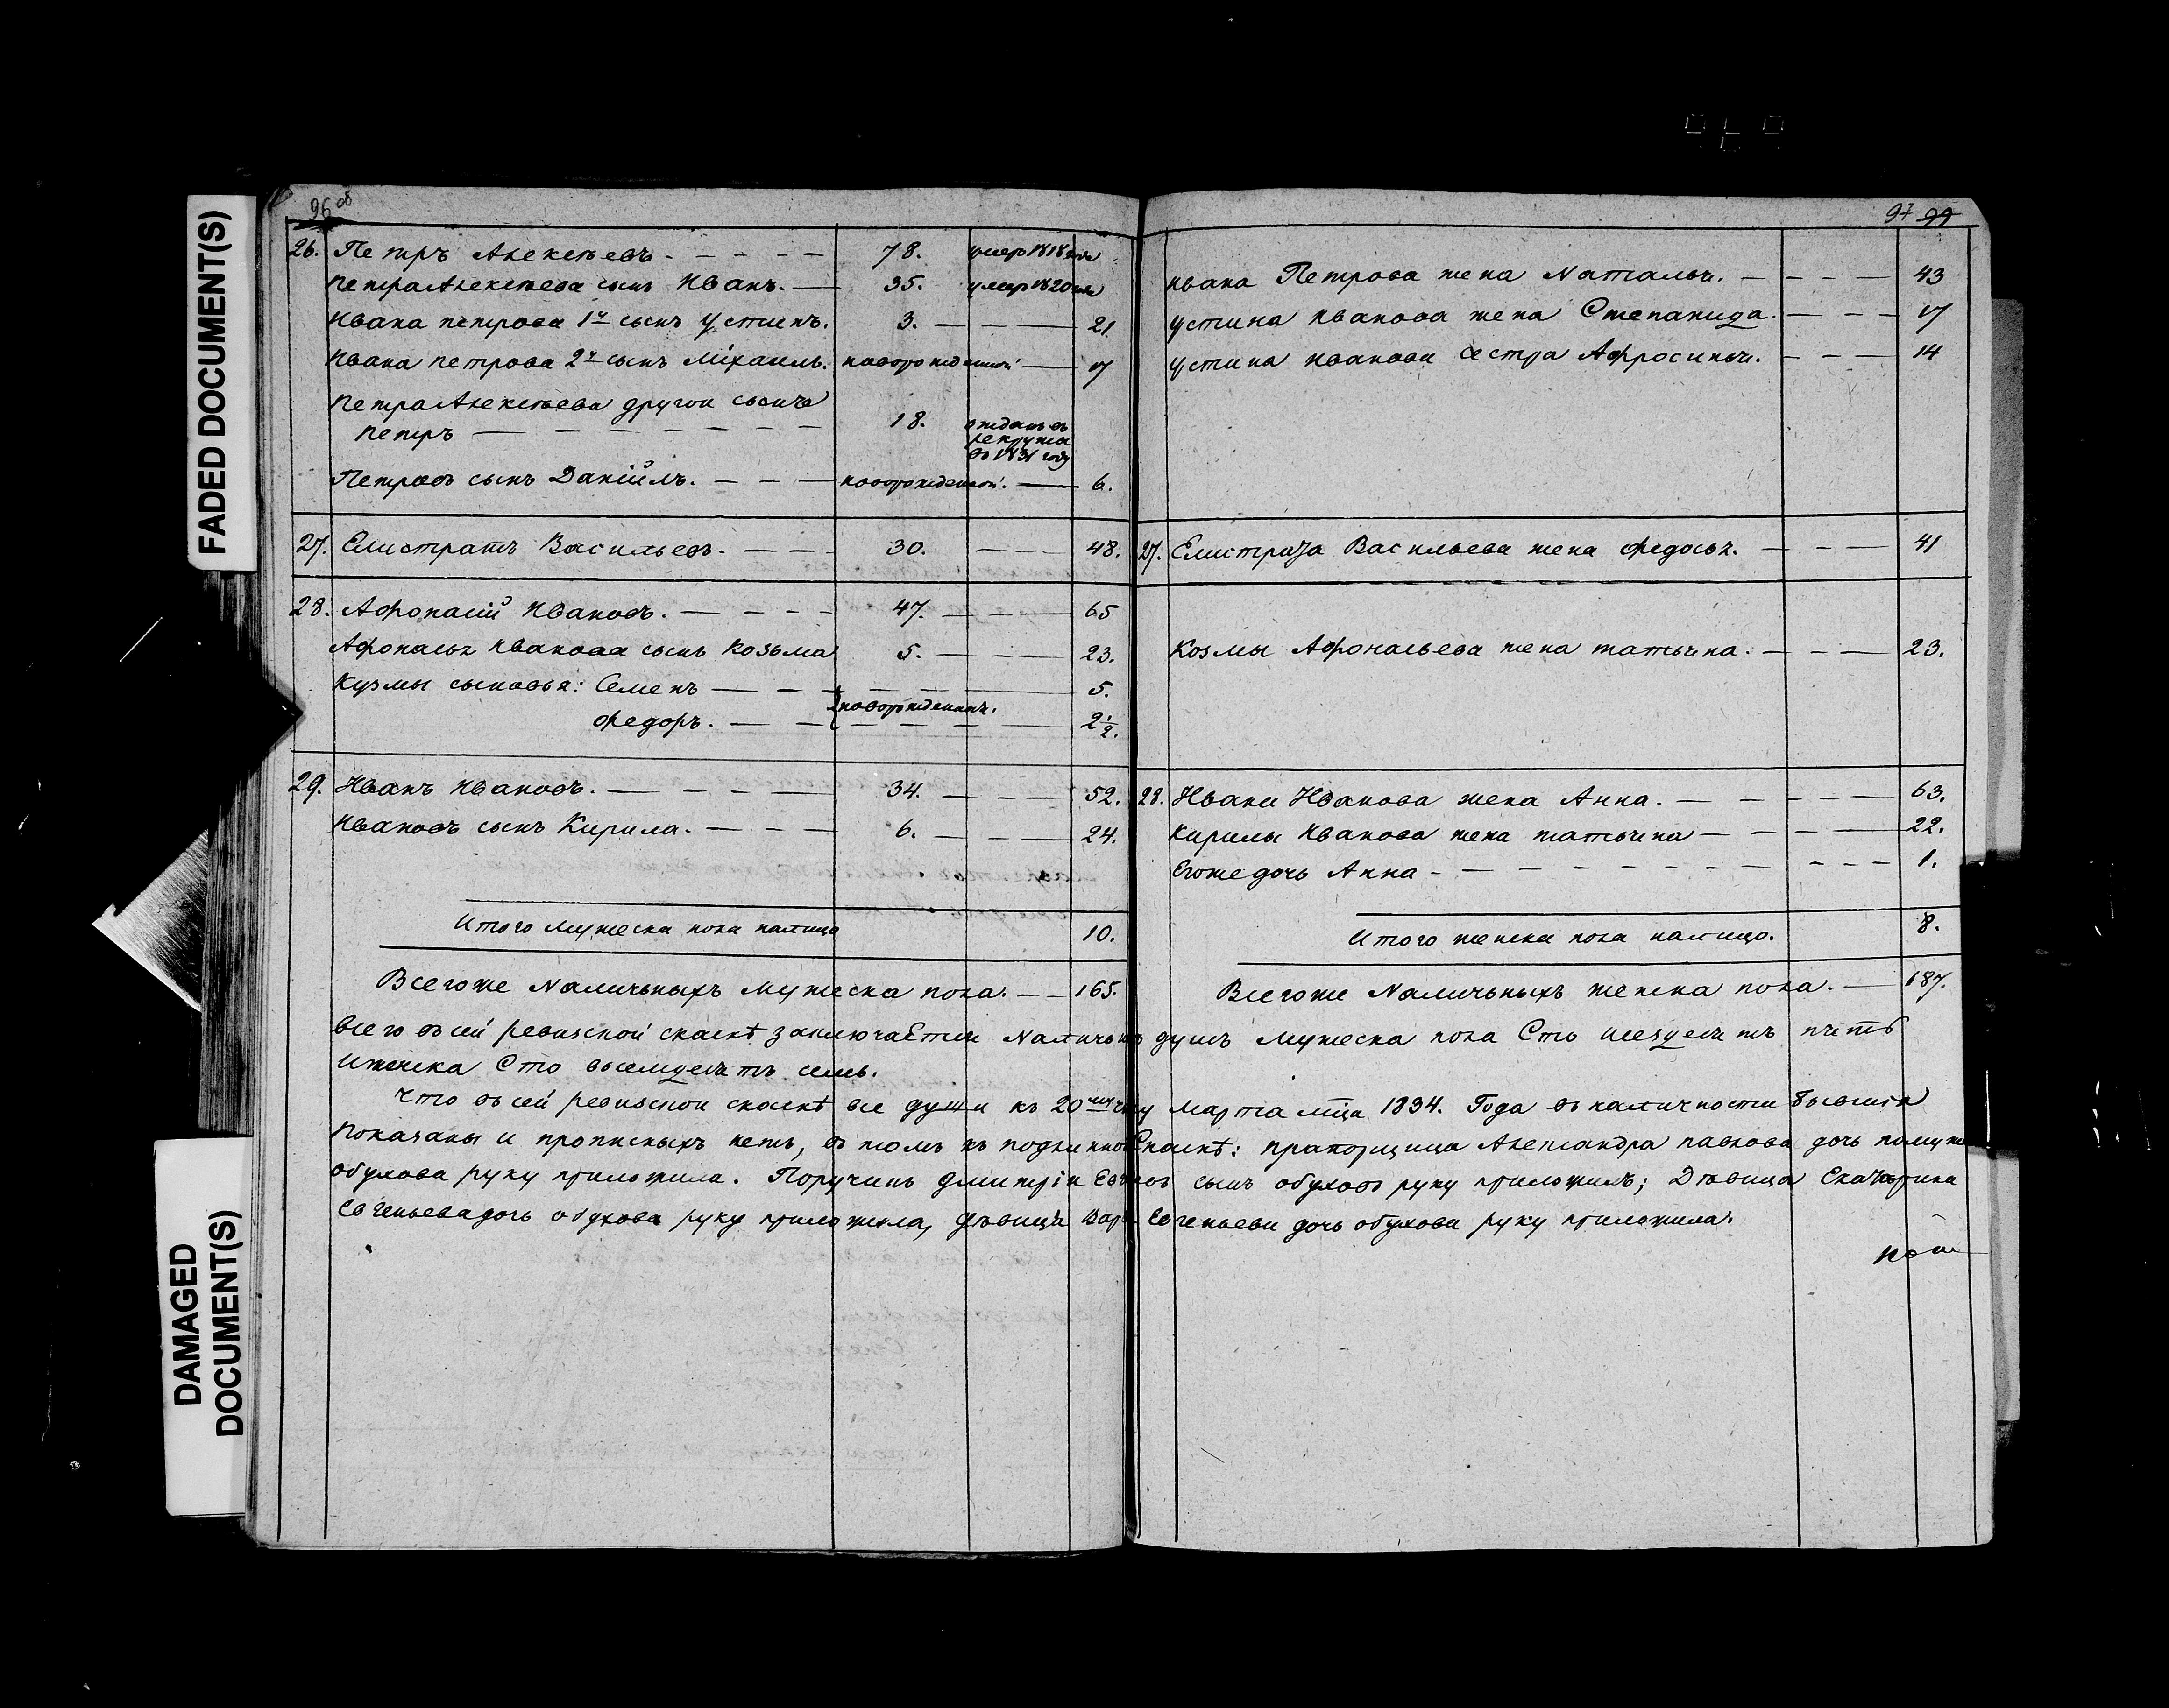 FADED DOCUMENT(S)
DAMAGED
DOCUMENT(S)
96 об
26. Петръ Алексѣевъ. 78. умеръ 1818 года
Петра Алексѣева сынъ Иванъ. 35. умеръ 1820 года
Ивана петрова 1й сынъ Устинъ. 3. 21.
Ивана петрова 2й сынъ Михаилъ. новорожденной 17
Петра Алексѣева другой сынъ
Петръ 18. отданъ въ
рекруты
въ 1831 году
Петровъ сынъ Даніилъ. новорожденной. 6.
27. Елистратъ Васильевъ. 30. 48.
28. Афонасій Ивановъ. 47. 65
Афонасья Иванова сынъ Козьма 5. 23.
Кузмы сыновья: Семенъ 5.
новорожденныя.
Федоръ. 2 1/2.
29. Иванъ Ивановъ. 34. 52.
Ивановъ сынъ Кирила. 6. 24.
Итого мужеска пола налицо 10.
Всегоже Наличьныхъ Мужеска пола. 165.
97 99
Ивана Петрова жена Наталья. 43
Устина Иванова жена Степанида. 17
Устина Иванова сестра Афросинья. 14
27. Елистрата Васильева жена Федосья. 41
Козмы Афонасьева жена татьяна. 23.
28. Ивана Иванова жена Анна. 63.
Кирилы Иванова жена татьяна 22.
Егоже дочь Анна 1.
Итого женска пола налицо. 8.
Всегоже Наличьныхъ женска пола. 187.
Всего въ сей ревизской скаскѣ заключаетца Наличьныхъ душъ Мужеска пола Сто шездесятъ пять
и женска Сто восемдесятъ семь.
Что въ сей ревизской скаскѣ все души къ 20му числу Марта мца 1834. Года въ наличности бывшія
показаны и прописныхъ нетъ, въ томъ къ подлинной Скаскѣ: прапорщица Александра павлова дочь по мужу
обухова руку приложила. Поручикъ Дмитрій сынъ обуховъ руку приложилъ; Дѣвица Екатерина
Евгеньева дочь обухова руку приложила, дѣвица Варвара Евгеньева дочь обухова руку приложила.